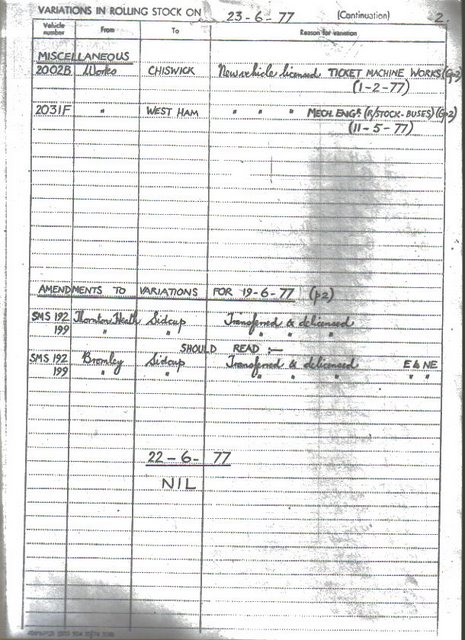 VARIATIONS IN ROLLING STOCK ON 23-6-77 (Continuation) 2.
Vehicle number From To Reason for variation
MISCELLANEOUS
2002B Works CHISWICK New vehicle licensed TICKET MACHINE WORKS (Gp2)
(1-2-77)
2031F " WEST HAM " " " MECH. ENGR. (R/STOCK-BUSES) (Gp2)
(11-5-77)
AMENDMENTS TO VARIATIONS FOR 19-6-77 (p2)
SMS 192 Thornton Heath Sidcup Transferred & delicensed
199 " " " " "
SHOULD READ :—
SMS 192 Bromley Sidcup Transferred & delicensed E & NE
199 " " " " " " "
22-6-77
NIL